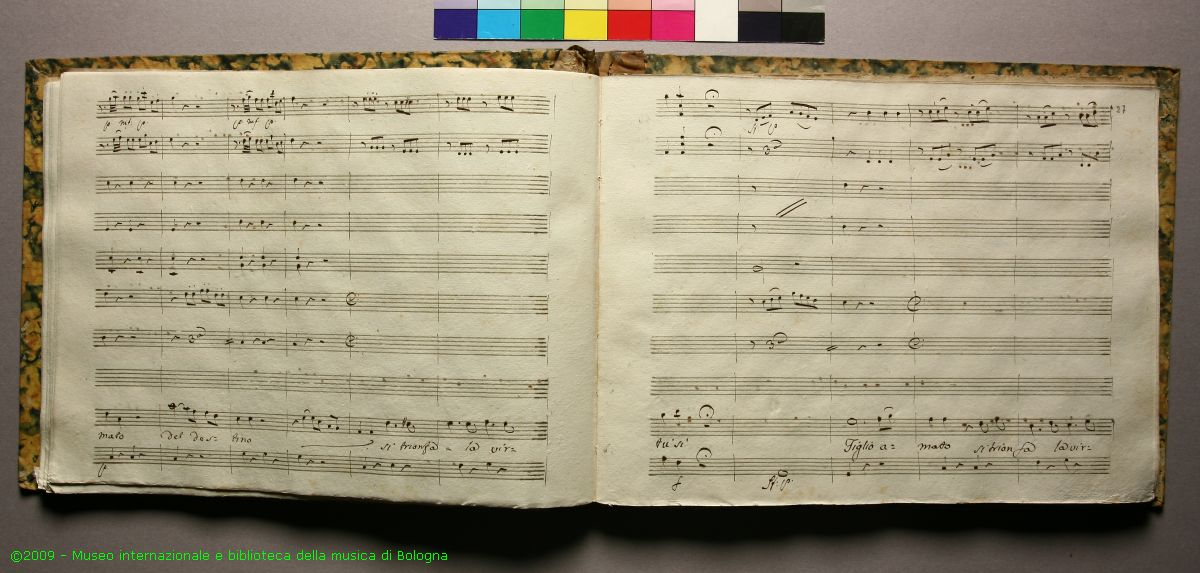 mato del des= tino si trionfa = la vir=
27
tu' si' Figlio a= mato si trionfa la vir=
f
©2009 - Museo internazionale e biblioteca della musica di Bologna